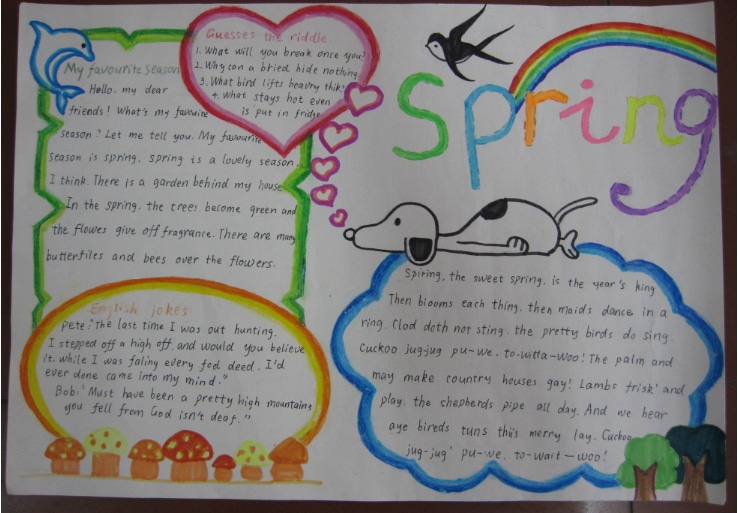 Guesses the riddle
1. What will you break once you?
2. Why can a bried hide nothing
3. What bird lifts heavry thik?
4. What stays hot even
is put in fridge
My favourite season
Hello. my dear
friends! What's my favorite
season? Let me tell you. My favourite
season is spring. spring is a lovely season.
I think. There is a garden behind my house
In the spring. the trees become green and
the flowes give off fragrance. There are many
butterfiles and bees over the flowers.
English jokes
Pete: "The last time I was out hunting.
I stepped off a high off and would you believe
it. while I was faling every fod deed. I'd
ever done came into my mind."
Bob: "Must have been a pretty high mountains
you fell from God isn't deaf."
Spring
Spiring, the sweet spring. is the year's king
Then blooms each thing. then maids dance in a
ring. Clod doth not sting. the pretty birds do sing.
Cuckoo jug-jug pu-we. to-witta-woo! The palm and
may make country houses gay! Lambs frisk' and
play. the shepherds pipe all day. And we hear
aye bireds tuns this merry lay. Cuckoo
jug-jug' pu-we. to-wait-woo!